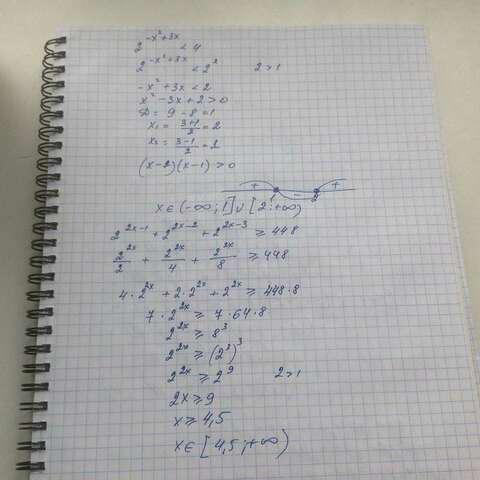 2^(-x²+3x) < 4
2^(-x²+3x) < 2² 2 > 1
-x² + 3x < 2
x² - 3x + 2 > 0
D = 9 - 8 = 1
x₁ = (3+1)/2 = 2
x₂ = (3-1)/2 = 2
(x-2)(x-1) > 0
+ - +
1 2
x ∈ (-∞; 1] ∪ [2; +∞)
2^(2x-1) + 2^(2x-2) + 2^(2x-3) ≥ 448
2^(2x)/2 + 2^(2x)/4 + 2^(2x)/8 ≥ 448
4 · 2^(2x) + 2 · 2^(2x) + 2^(2x) ≥ 448 · 8
7 · 2^(2x) ≥ 7 · 64 · 8
2^(2x) ≥ 8³
2^(2x) ≥ (2³)³
2^(2x) ≥ 2⁹ 2 > 1
2x ≥ 9
x ≥ 4,5
x ∈ [4,5; +∞)